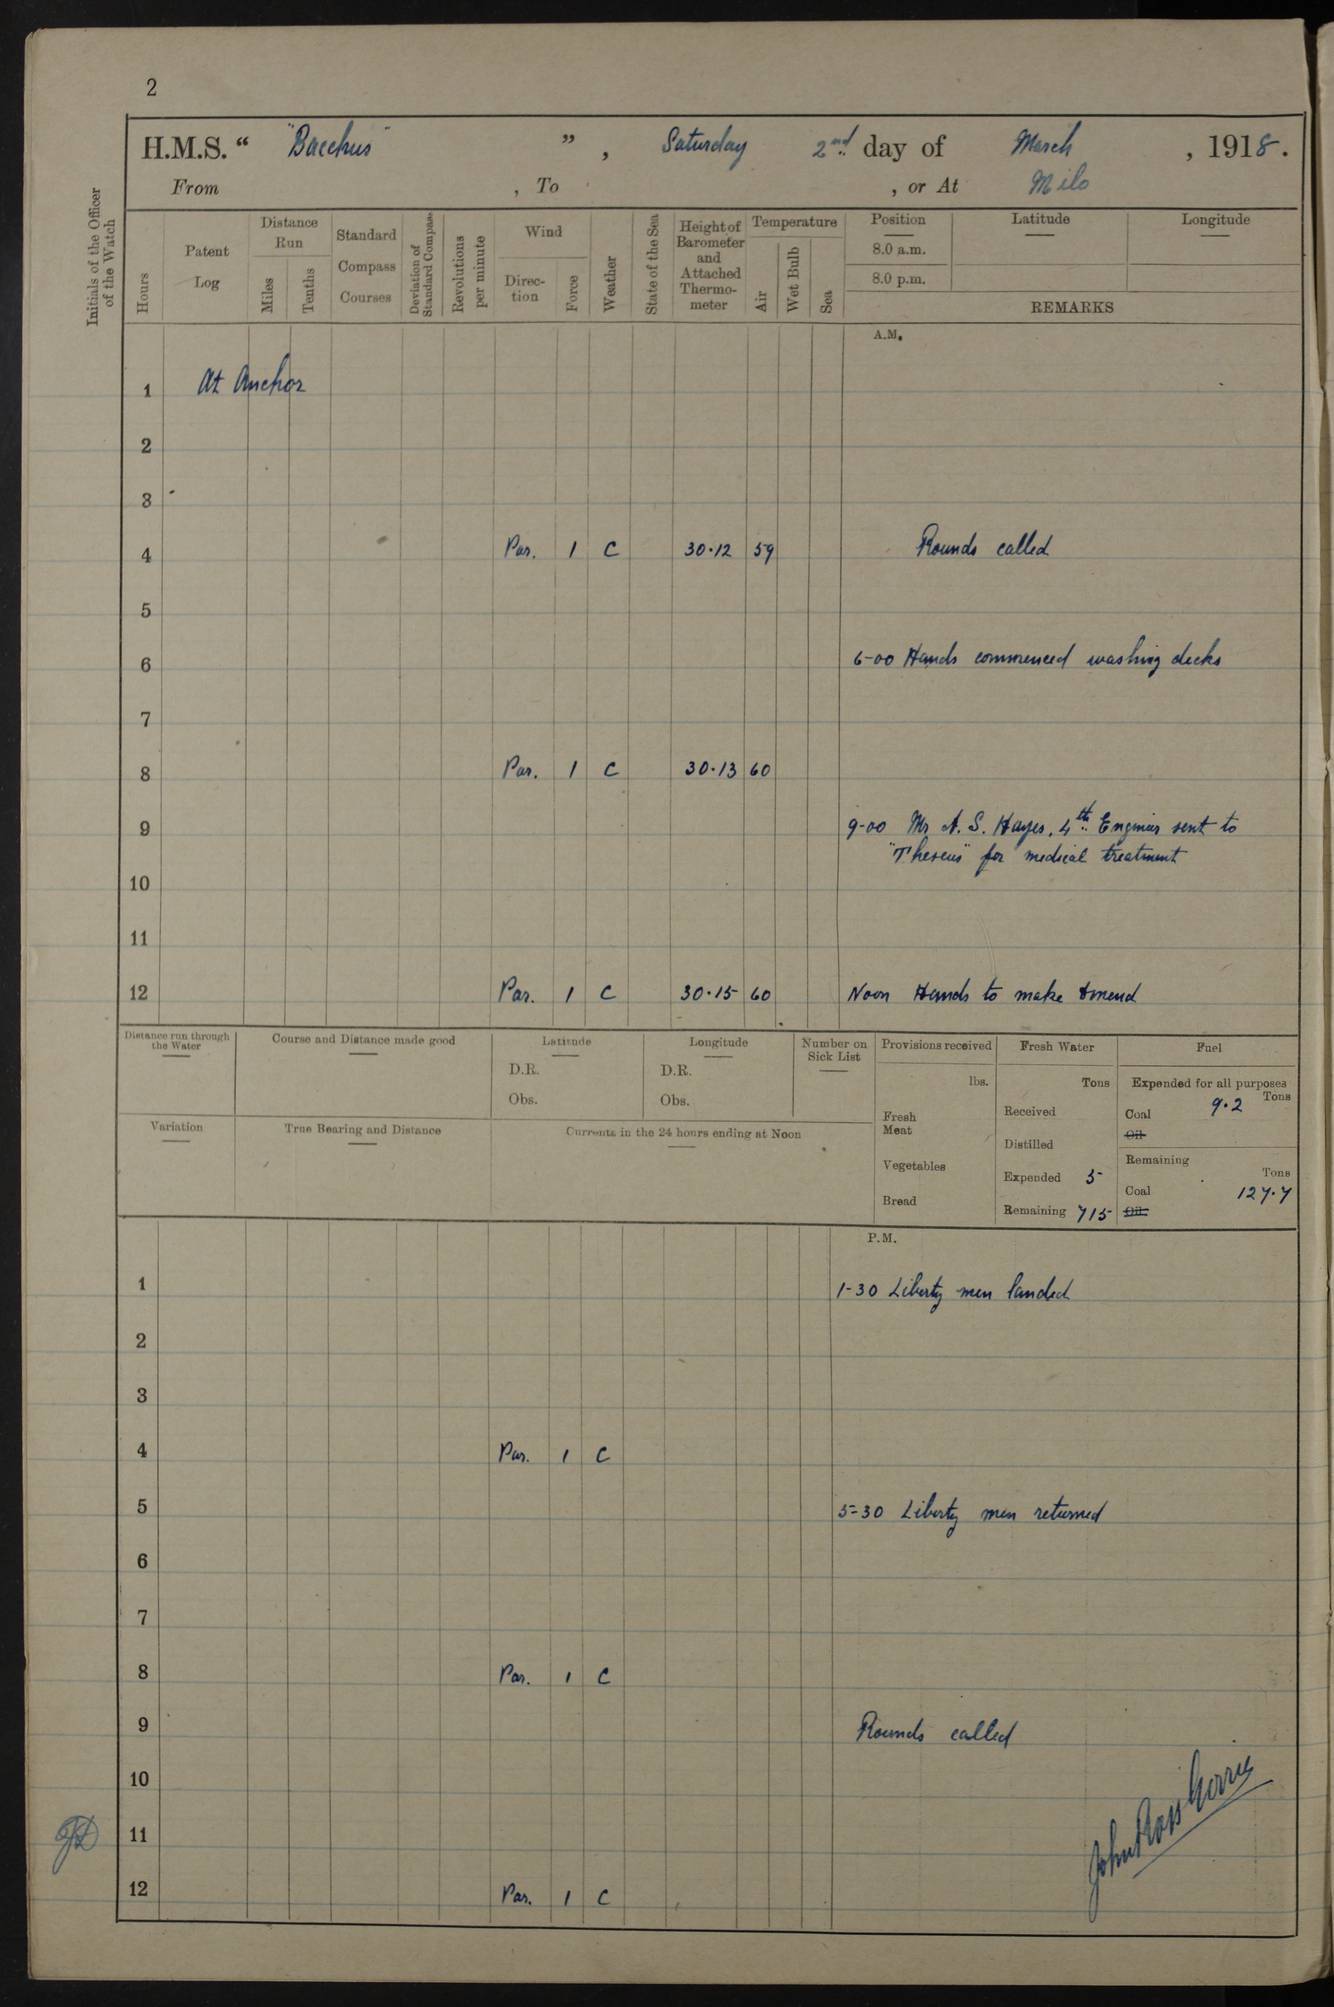 2
H.M.S. “ "Bacchus" ” , Saturday 2nd day of March , 1918.
From , To , or At Milo
Initials of the Officer of the Watch
Hours
Patent Log
Distance Run
Miles
Tenths
Standard Compass Courses
Deviation of Standard Compass
Revolutions per minute
Wind
Direction
Force
Weather
State of the Sea
Height of Barometer and Attached Thermometer
Temperature
Air
Wet Bulb
Sea
Position Latitude Longitude
8.0 a.m.
8.0 p.m.
REMARKS
A.M.
1 At Anchor
2
3
4 Par. 1 C 30·12 59 Rounds called
5
6 6-00 Hands commenced washing decks
7
8 Par. 1 C 30·13 60
9 9-00 Mr A. S. Hayes, 4th Engineer sent to
"Theseus" for medical treatment
10
11
12 Par. 1 C 30·15 60 Noon Hands to make & mend
Distance run through the Water
Course and Distance made good
Latitude
D.R.
Obs.
Longitude
D.R.
Obs.
Number on Sick List
Variation
True Bearing and Distance
Currents in the 24 hours ending at Noon
Provisions received
lbs.
Fresh Meat
Vegetables
Bread
Fresh Water
Tons
Received
Distilled
Expended 5
Remaining 715
Fuel
Expended for all purposes
Tons
Coal 9·2
Oil
Remaining
Tons
Coal 127·7
Oil
P.M.
1 1-30 Liberty men landed
2
3
4 Par. 1 C
5 5-30 Liberty men returned
6
7
8 Par. 1 C
9 Rounds called
10
11
12 Par. 1 C